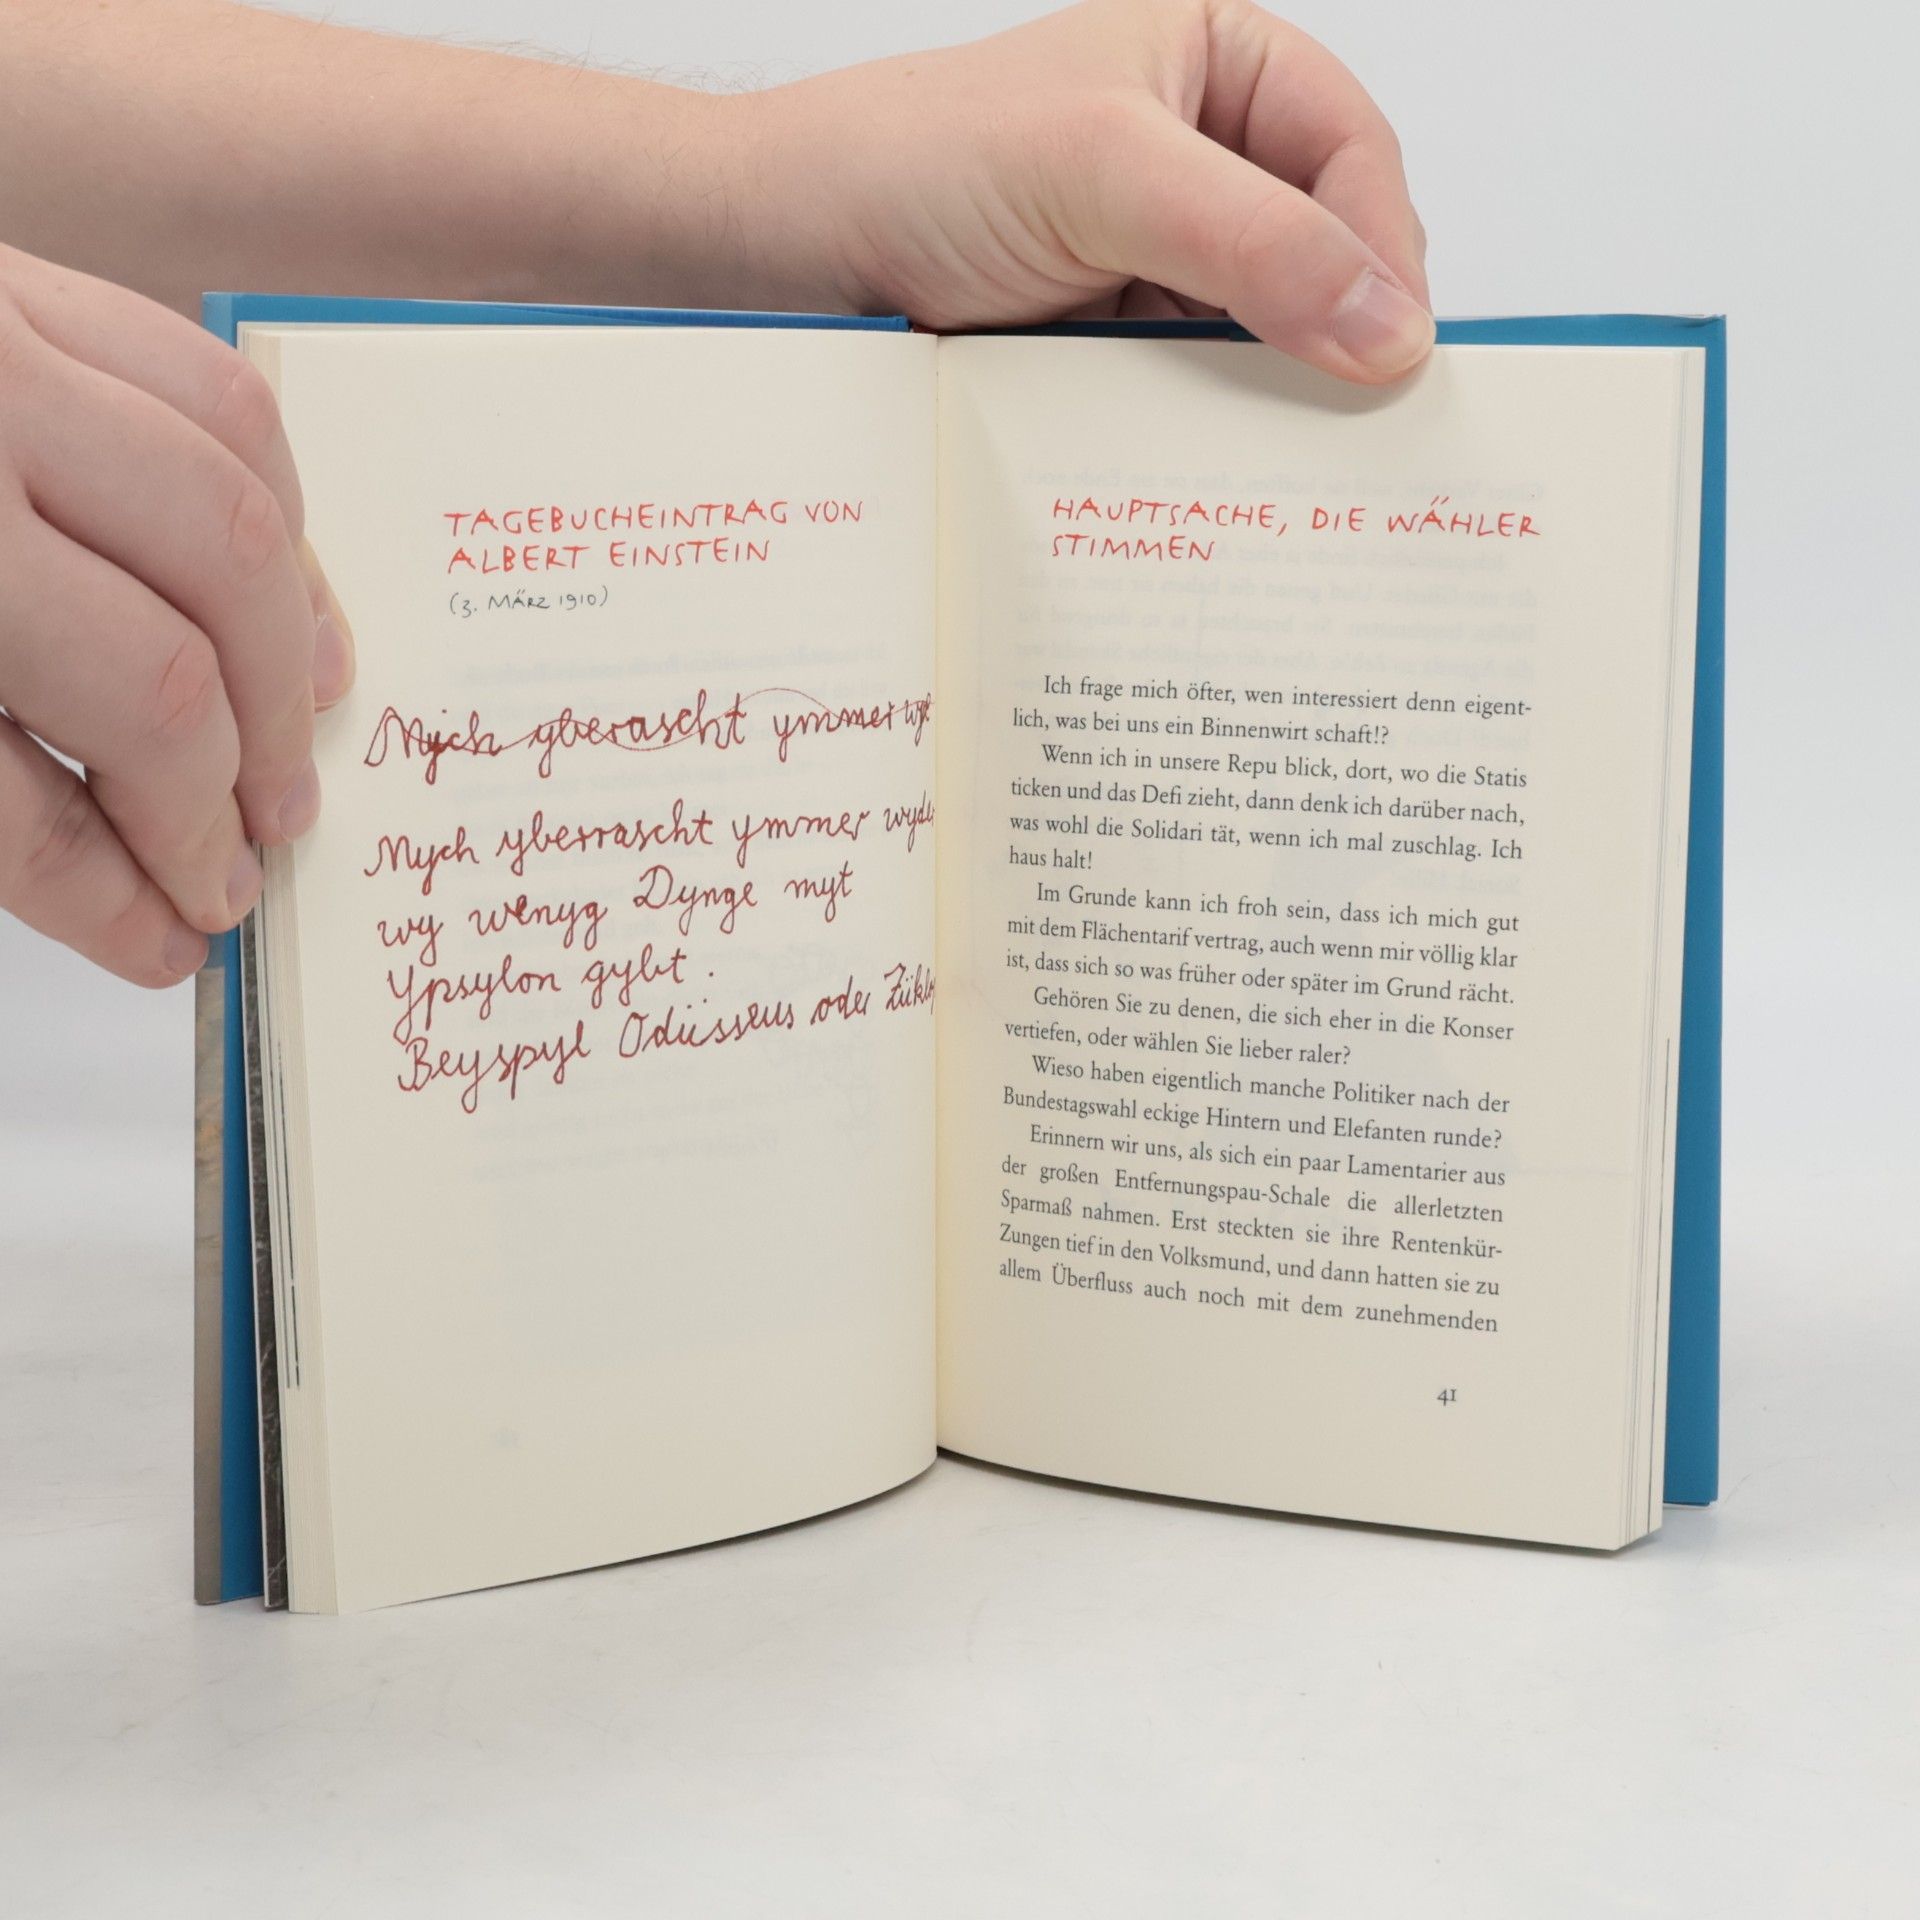 TAGEBUCHEINTRAG VON
ALBERT EINSTEIN
(3. MÄRZ 1910)
Mych yberascht ymmer
Mych yberrascht ymmer
wy wenyg Dynge myt
Ypsylon gybt.
Beyspyl Odüsseus oder
HAUPTSACHE, DIE WÄHLER
STIMMEN
Ich frage mich öfter, wen interessiert denn eigent-
lich, was bei uns ein Binnenwirt schaft!?
Wenn ich in unsere Repu blick, dort, wo die Statis
ticken und das Defi zieht, dann denk ich darüber nach,
was wohl die Solidari tät, wenn ich mal zuschlag. Ich
haus halt!
Im Grunde kann ich froh sein, dass ich mich gut
mit dem Flächentarif vertrag, auch wenn mir völlig klar
ist, dass sich so was früher oder später im Grund rächt.
Gehören Sie zu denen, die sich eher in die Konser
vertiefen, oder wählen Sie lieber raler?
Wieso haben eigentlich manche Politiker nach der
Bundestagswahl eckige Hintern und Elefanten runde?
Erinnern wir uns, als sich ein paar Lamentarier aus
der großen Entfernungspau-Schale die allerletzten
Sparmaß nahmen. Erst steckten sie ihre Rentenkür-
Zungen tief in den Volksmund, und dann hatten sie zu
allem Überfluss auch noch mit dem zunehmenden
41